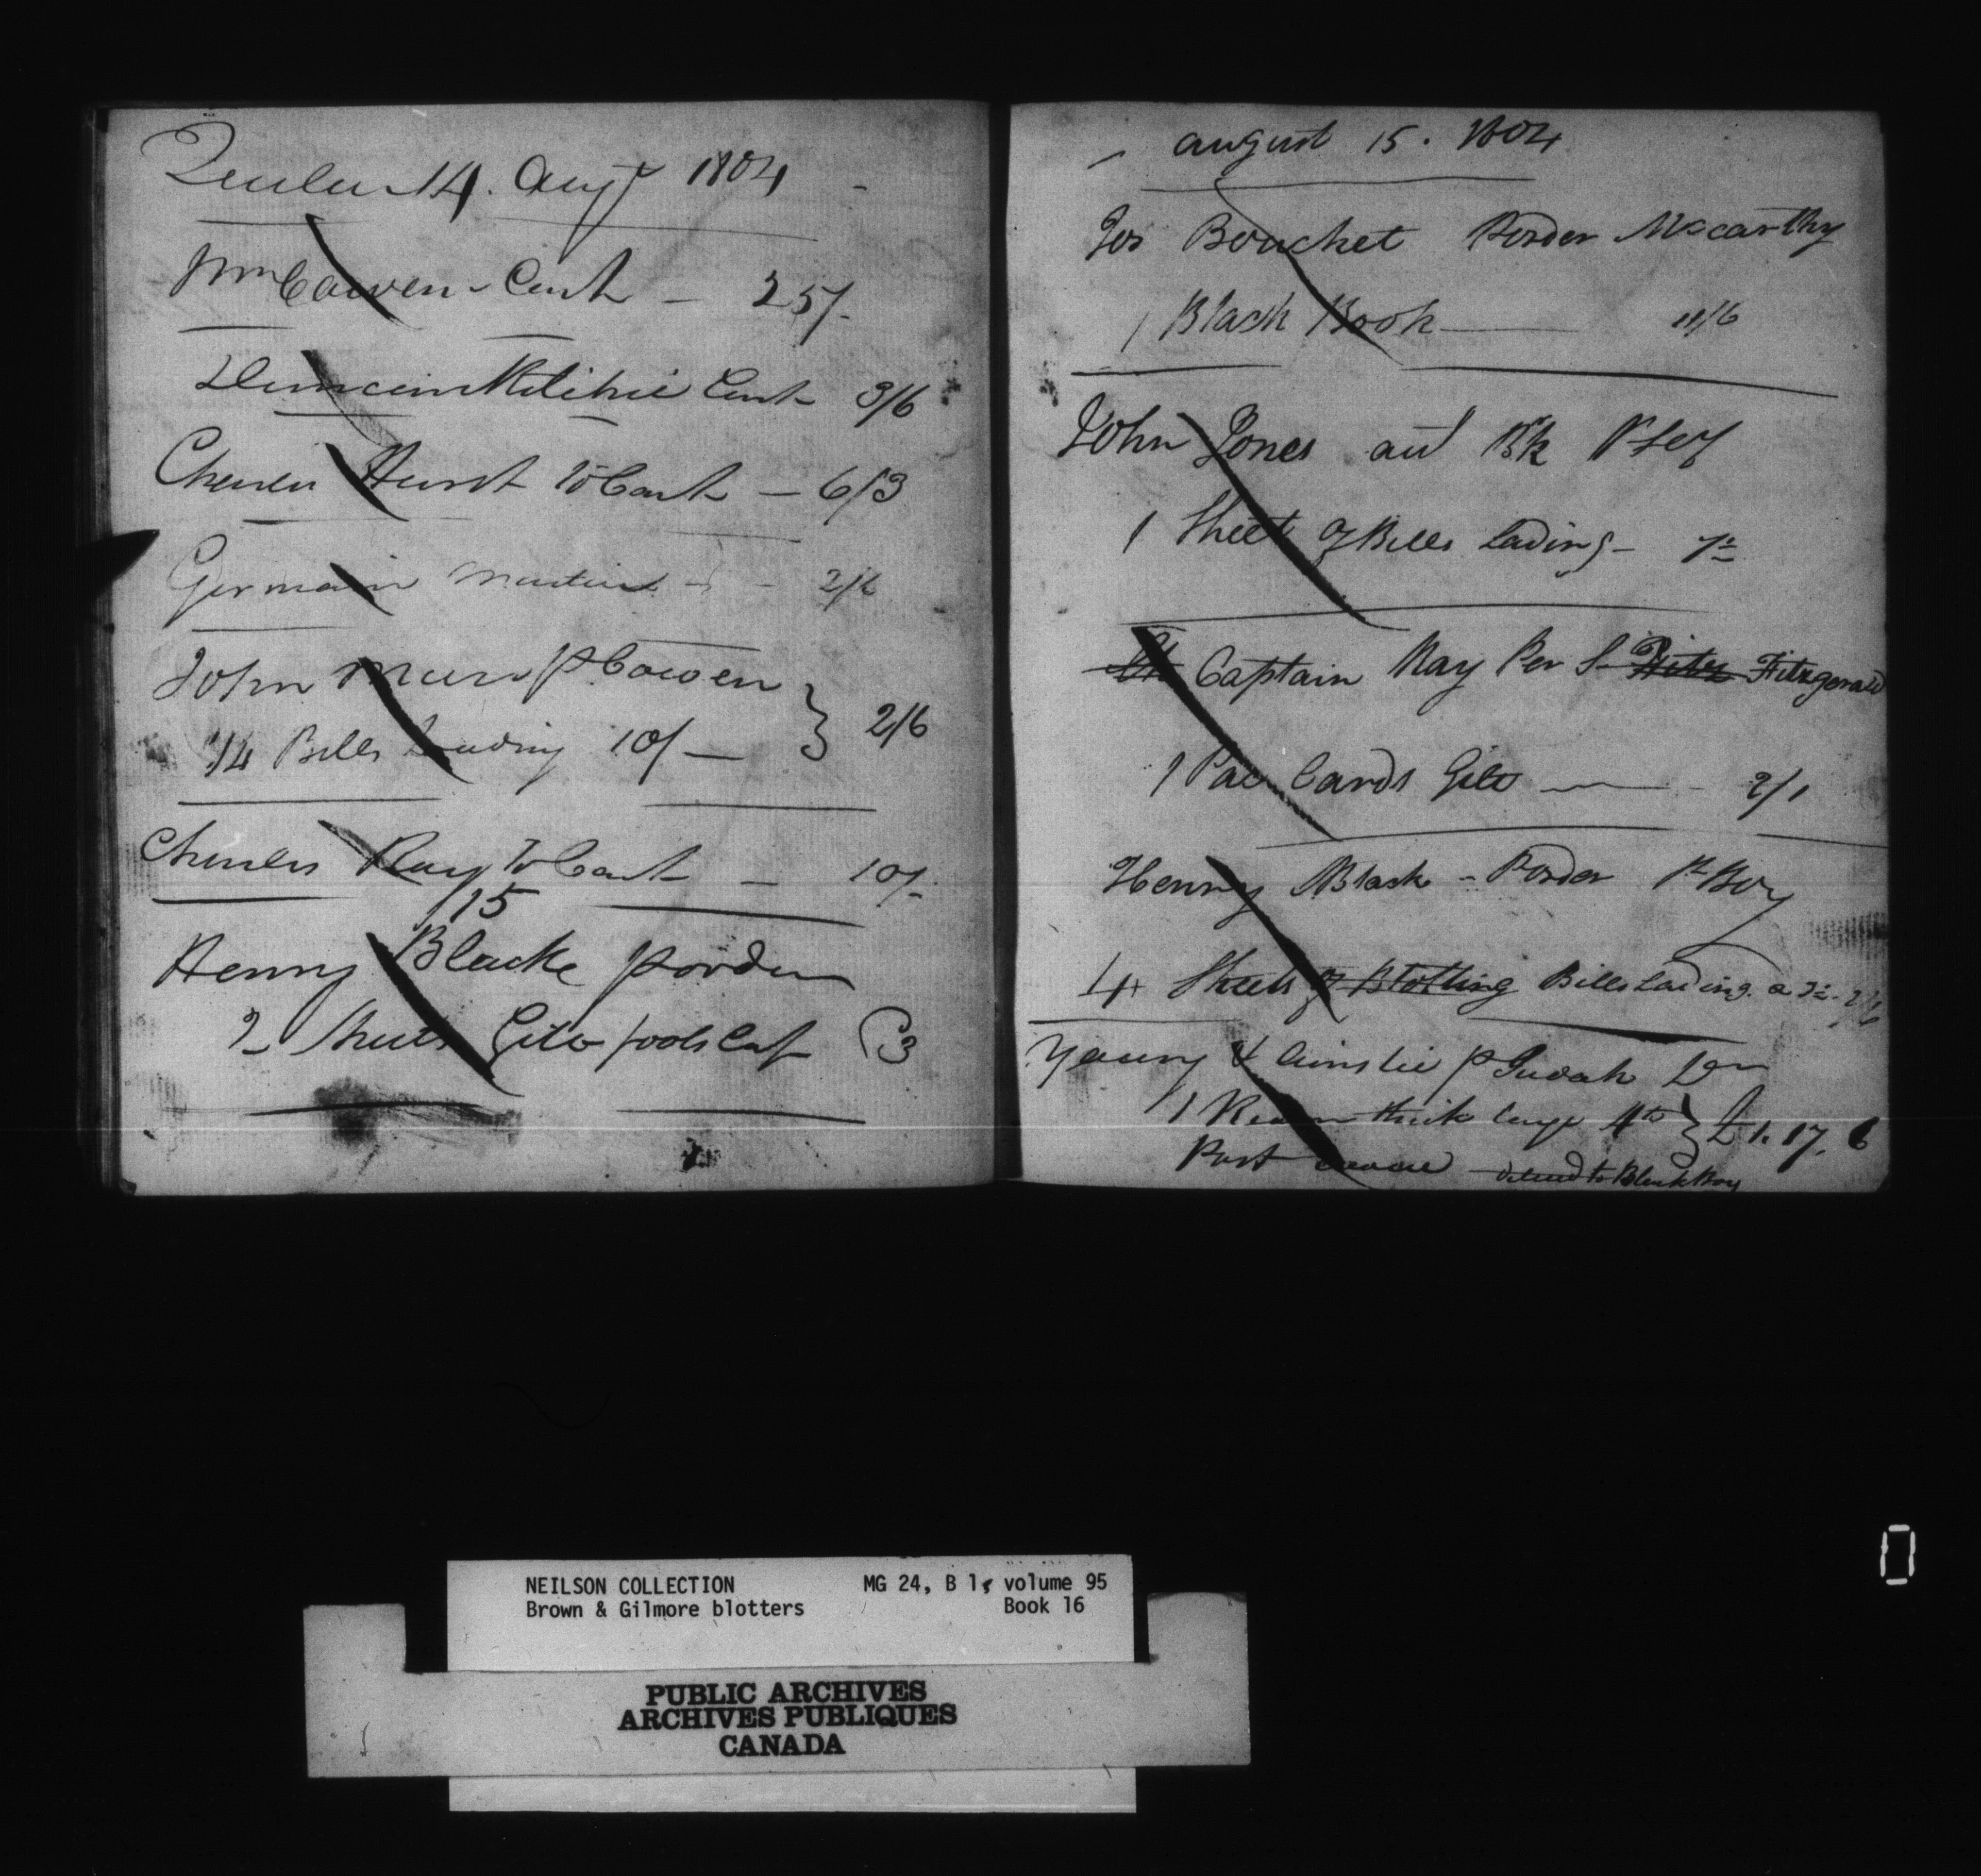 Quebec 14. Augt 1804
Wm Cowen - Cash - 25/-
Duncan Ritchie Cash 3/6
Charles Hurst To Cash - 6/3
Germain - 2/6
John Muir p Cowen
14 Bills Loading 10/- } 2/6
Charles Ray To Cash - 10/-
15
Henry Blacke p order
2 Sheets Gilt fools Cap 3
august 15. 1804
Jos Bouchet P order Mccarthy
1 Blach Book 11/6
John Jones
1 Sheet of Bills Lading -
Captain Ray Per S- Fitzgerald
1 Pac Cards Gilt 2/1
Henry Black - P order P Boy
4 Sheets of Blotting Bills Lading a
Young & Ainslie p Judah
1 Ream thick large 4to } £1.17.6
Post
NEILSON COLLECTION MG 24, B 1, volume 95
Brown & Gilmore blotters Book 16
PUBLIC ARCHIVES
ARCHIVES PUBLIQUES
CANADA
0